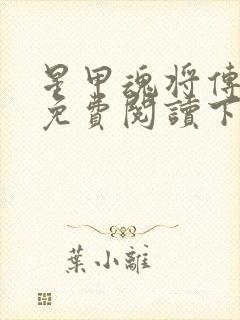 星甲魂将傳
免費閱讀下
葉小離